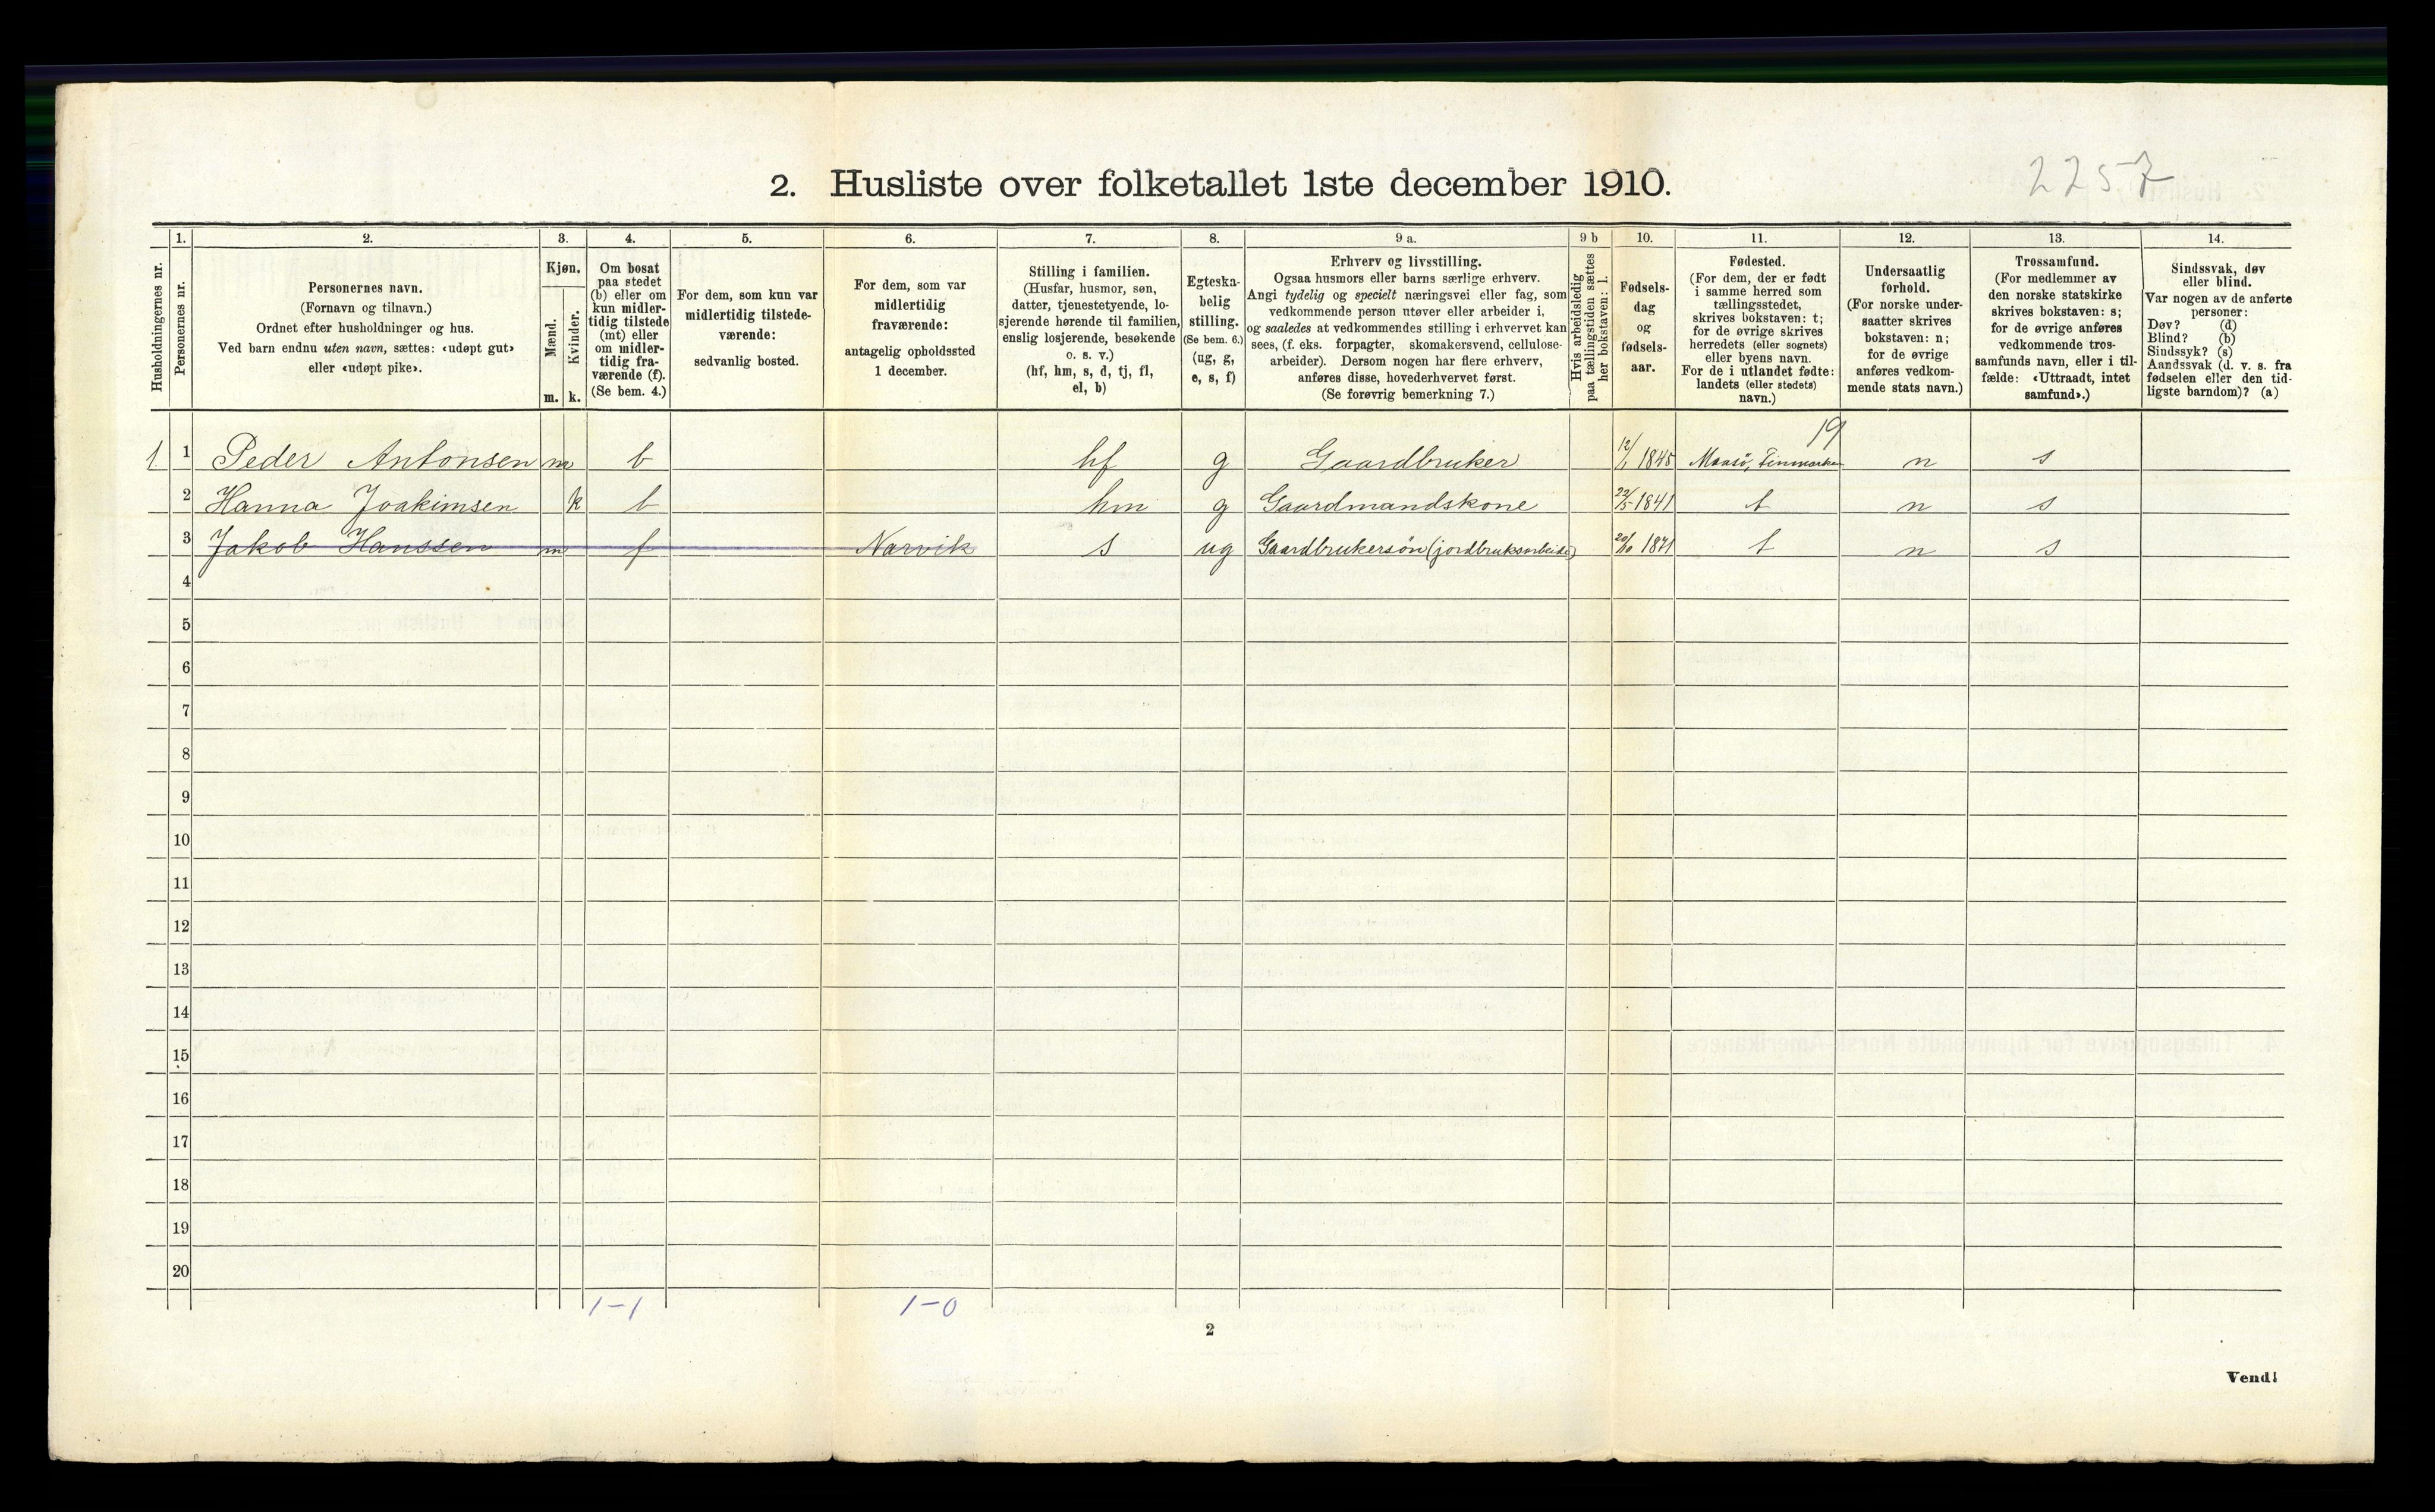 2257
2. Husliste over folketallet 1ste december 1910.
Husholdningernes nr.
1.
Personernes nr.
2.
Personernes navn.
(Fornavn og tilnavn.)
Ordnet efter husholdninger og hus.
Ved barn endnu uten navn, sættes: «udøpt gut»
eller «udøpt pike».
3.
Kjøn.
Mænd.
Kvinder.
m. k.
4.
Om bosat
paa stedet
(b) eller om
kun midler-
tidig tilstede
(mt) eller
om midler-
tidig fra-
værende (f).
(Se bem. 4.)
5.
For dem, som kun var
midlertidig tilstede-
værende:
sedvanlig bosted.
6.
For dem, som var
midlertidig
fraværende:
antagelig opholdssted
1 december.
7.
Stilling i familien.
(Husfar, husmor, søn,
datter, tjenestetyende, lo-
sjerende hørende til familien,
enslig losjerende, besøkende
o. s. v.)
(hf, hm, s, d, tj, fl,
el, b)
8.
Egteska-
belig
stilling.
(Se bem. 6.)
(ug, g,
e, s, f)
9 a.
Erhverv og livsstilling.
Ogsaa husmors eller barns særlige erhverv.
Angi tydelig og specielt næringsvei eller fag, som
vedkommende person utøver eller arbeider i,
og saaledes at vedkommendes stilling i erhvervet kan
sees, (f. eks. forpagter, skomakersvend, cellulose-
arbeider). Dersom nogen har flere erhverv,
anføres disse, hovederhvervet først.
(Se forøvrig bemerkning 7.)
9 b
Hvis arbeidsledig
paa tællingstiden sættes
her bokstaven: l.
10.
Fødsels-
dag
og
fødsels-
aar.
11.
Fødested.
(For dem, der er født
i samme herred som
tællingsstedet,
skrives bokstaven: t;
for de øvrige skrives
herredets (eller sognets)
eller byens navn.
For de i utlandet fødte:
landets (eller stedets)
navn.)
12.
Undersaatlig
forhold.
(For norske under-
saatter skrives
bokstaven: n;
for de øvrige
anføres vedkom-
mende stats navn.)
13.
Trossamfund.
(For medlemmer av
den norske statskirke
skrives bokstaven: s;
for de øvrige anføres
vedkommende tros-
samfunds navn, eller i til-
fælde: «Uttraadt, intet
samfund».)
14.
Sindssvak, døv
eller blind.
Var nogen av de anførte
personer:
Døv? (d)
Blind? (b)
Sindssyk? (s)
Aandssvak (d. v. s. fra
fødselen eller den tid-
ligste barndom)? (a)
19
1. 1 Peder Antonsen m b hf g Gaardbruker 12/1 1845 Maasö, Finmarken n s
2 Hanna Joakimsen k b hm g Gaardmandskone 22/5-1841 t n s
3 Jakob Hanssen m f Narvik s ug Gaardbrukersøn (jordbruksarbeider) 20/10 1871 t n s
4
5
6
7
8
9
10
11
12
13
14
15
16
17
18
19
20
1-1 1-0
2
Vend!